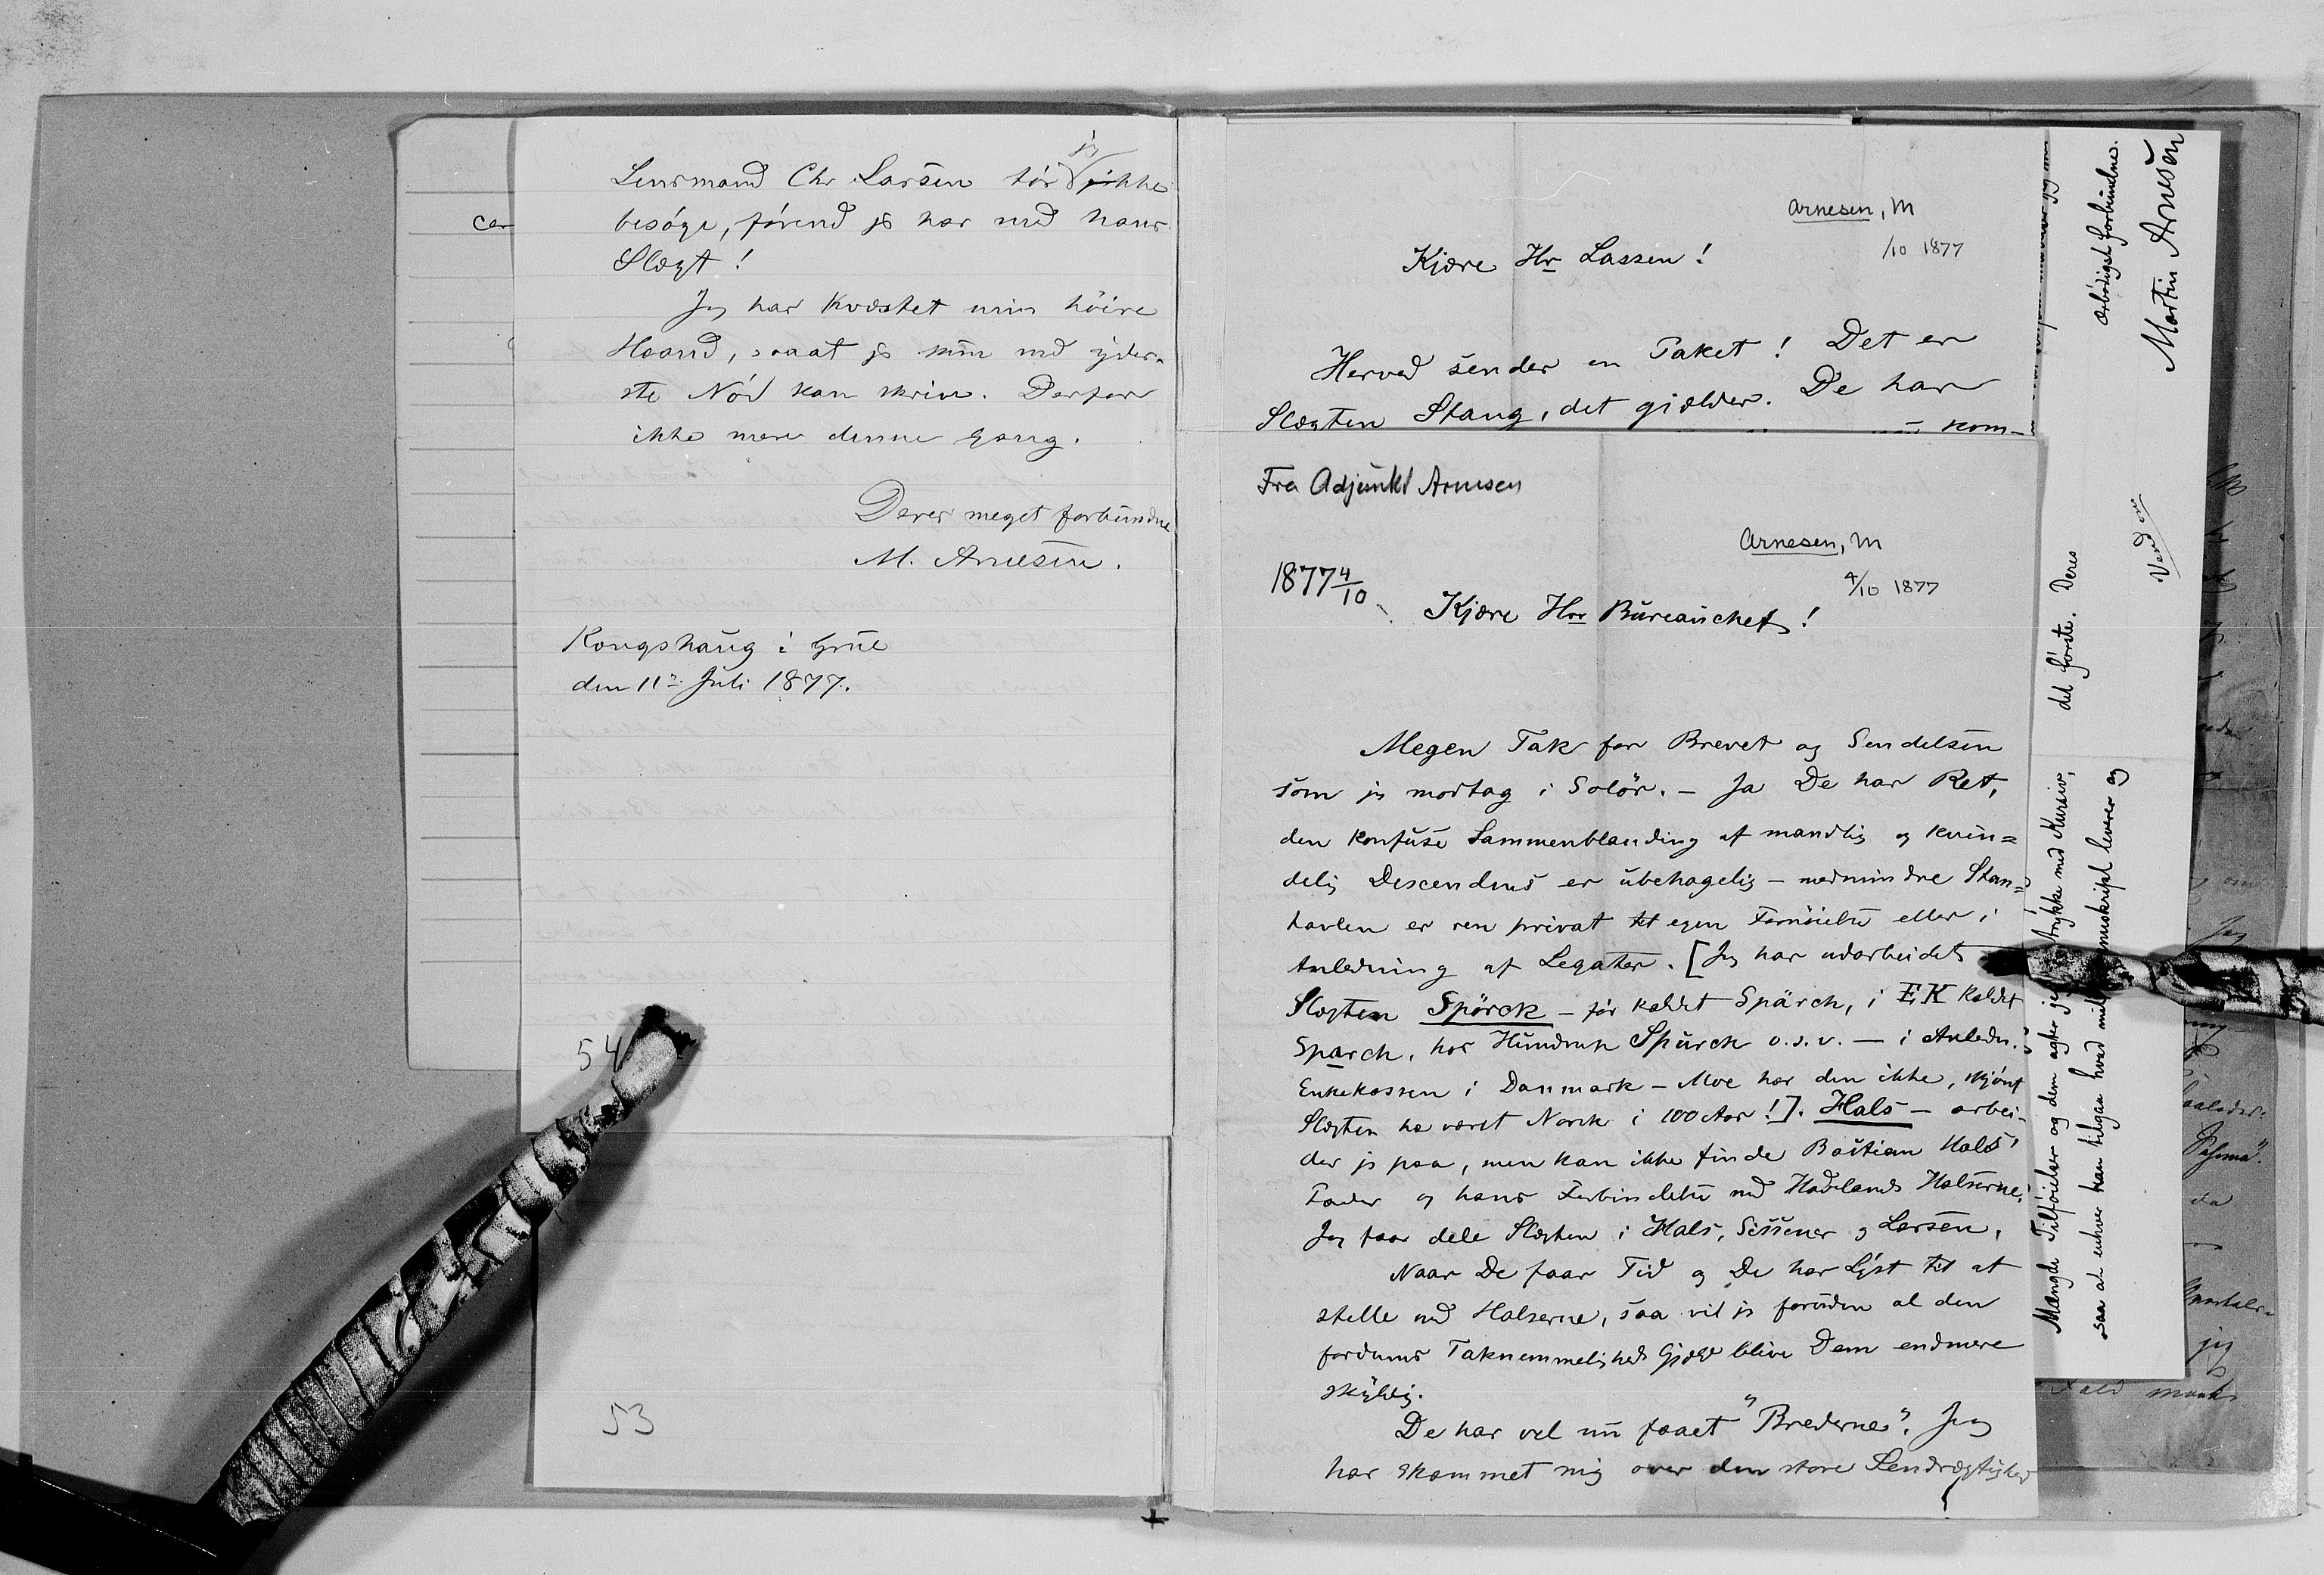 Lensmand Chr Larsen tör jeg ikke
besöge, förend jeg har med hans
Slægt!
Jeg har kvæstet min höire
Haand, saaat jeg kun med yder-
ste Nöd kan skrive. Derfor
ikke mere denne Gang.
Deres meget forbundne
M. Arnesen.
Kongshaug i Grue
den 11te Juli 1877.
54
53
Arnesen, M
/10 1877
Kjære Hr Lassen!
Herved sender en Paket! Det er
Slægten Stang, det gjælder. De har
kom-
Fra Adjunkt Arnesen
Arnesen, M
4/10 1877
1877 4/10
Kjære Hrr Bureauchef!
Megen Tak for Brevet og Sendelsen
som jeg modtog i Solör. - Ja De har Ret,
den konfuse Sammenblanding af mandlig og kvin=
delig Descendens er ubehagelig - medmindre Stam=
tavlen er ren privat til egen Fornöielse eller i
Anledning af Legater. [Jeg har udarbeidet
Slægten Spörck - för kaldt Spärch, i E.K kaldt
Sparch, hos Hundrup Spürck o.s.v. - i Anledn.
Enkekassen i Danmark - Moe har den ikke, skjönt
Slægten har været Norsk i 100 Aar!]. Hals - arbei-
der jeg paa, men kan ikke finde Bastian Hals'
Fader og hans Forbindelse med Hadelands Halserne.
Jeg faar dele Slægten i Hals, Sissener og Larsen.
Naar De faar Tid og De har Lyst til at
stelle med Halserne, saa vil jeg foruden al den
fordums Taknemmeligheds Gjæld blive Dem endmere
skyldig.
De har vel nu faaet "Brederne". Jeg
har skammet mig over den store Sendrægtighed
Mængde Tilföielser og dem agter jeg trykke med Kursiv,
saa at enhver kan tilgan hvad mit Manuskript leverer og
det förste. Deres
ærbödigst forbundne.
Martin Arnesen
Vend om